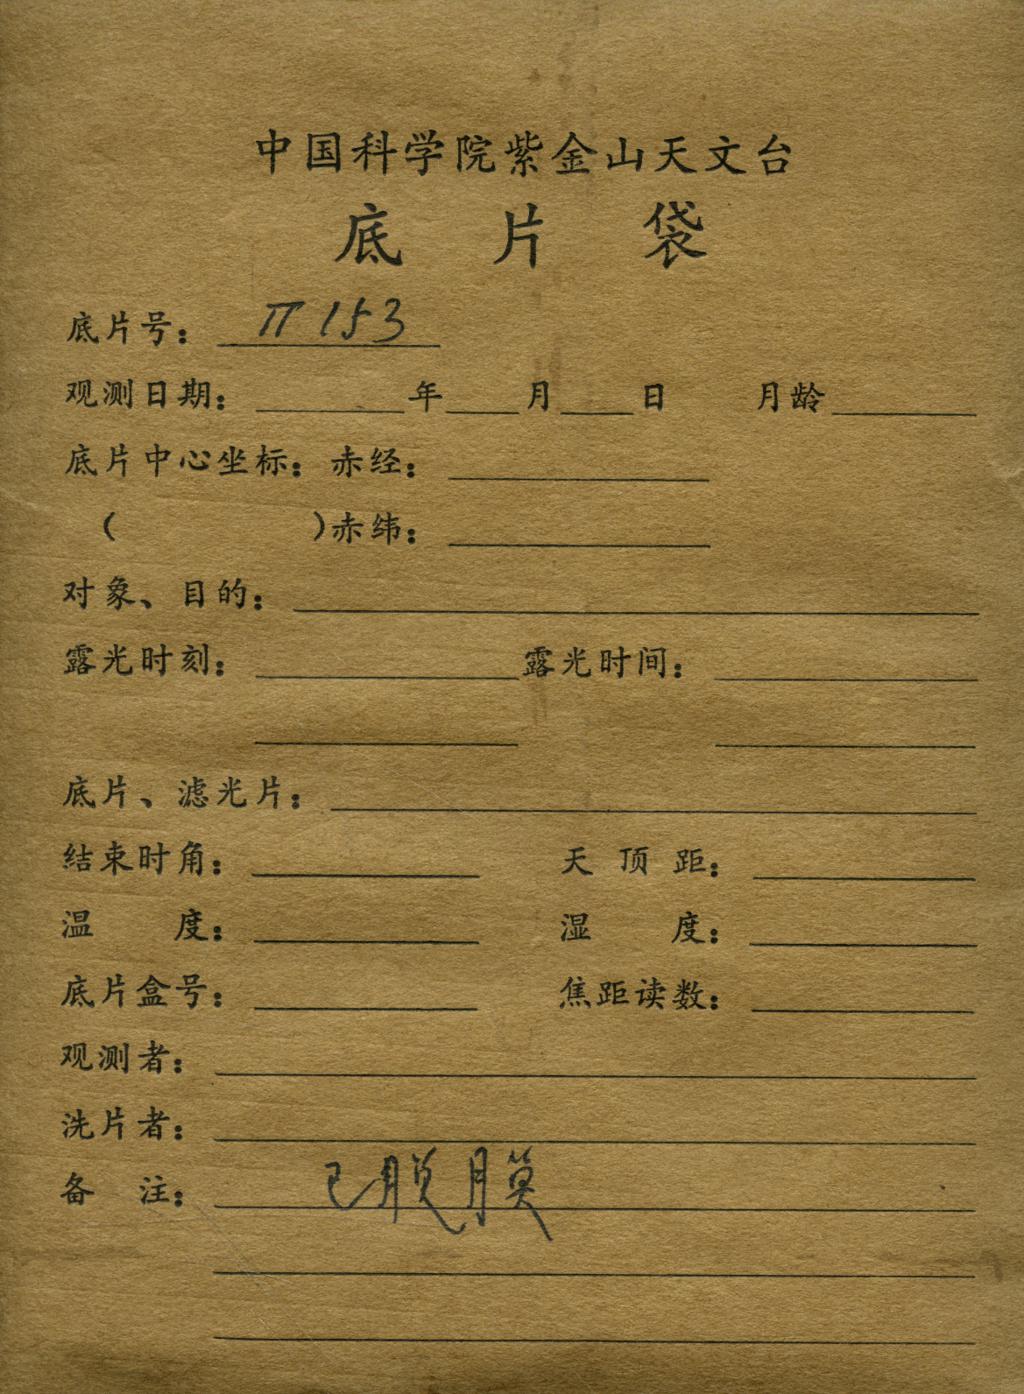 中国科学院紫金山天文台
底片袋
底片号： π 153
观测日期： 年 月 日 月龄
底片中心坐标：赤经：
（ ）赤纬：
对象、目的：
露光时刻： 露光时间：
底片、滤光片：
结束时角： 天顶距：
温 度： 湿 度：
底片盒号： 焦距读数：
观测者：
洗片者：
备 注： 已脱膜